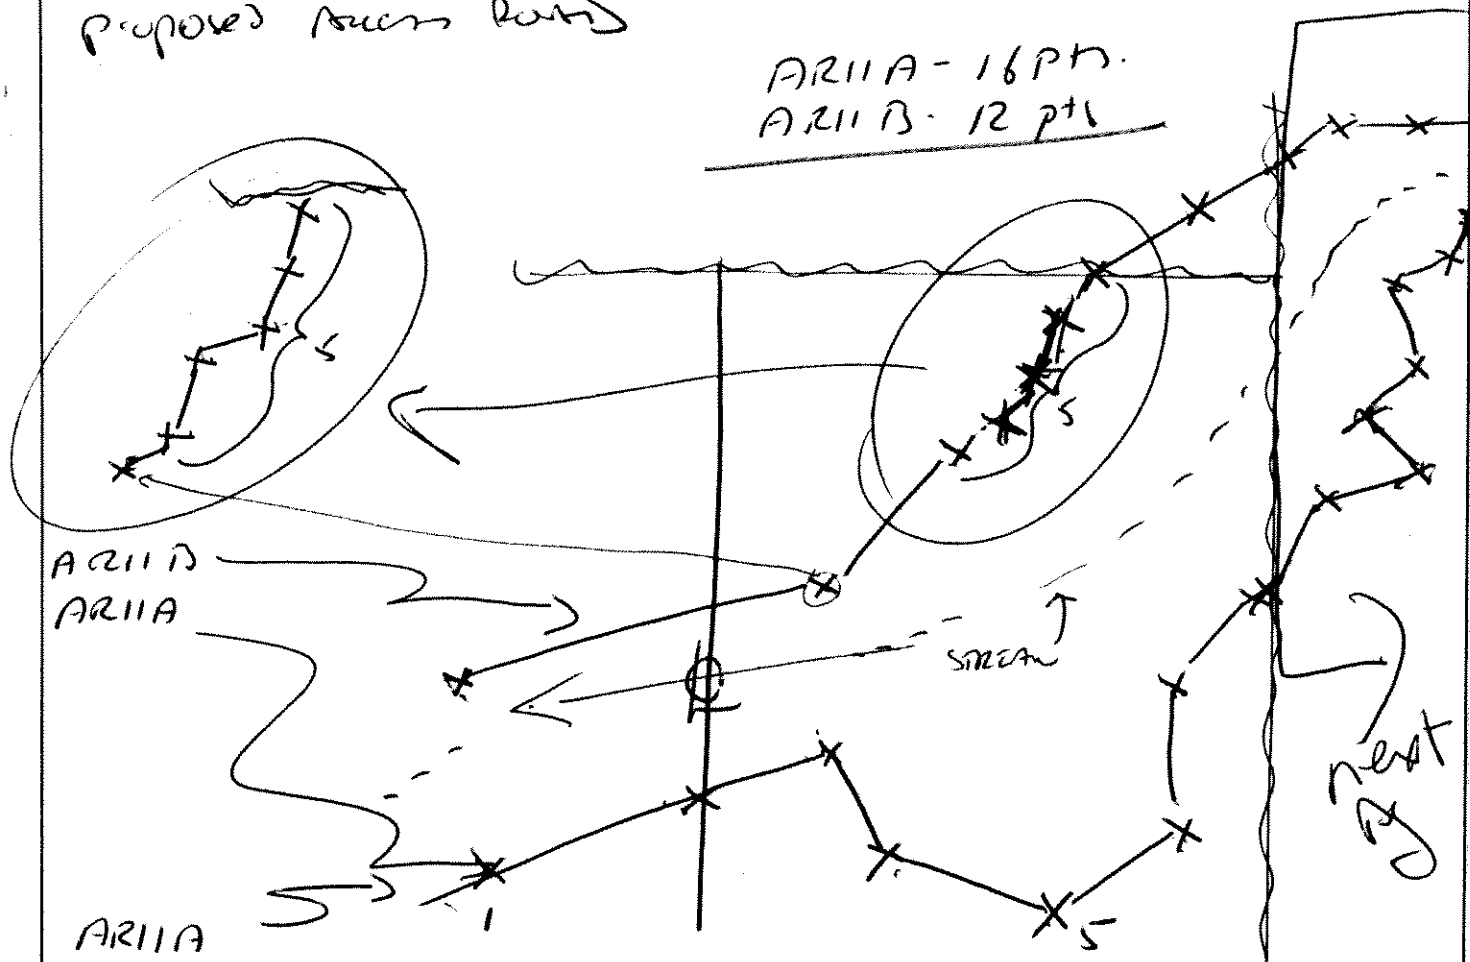 Proposed Access Road
AR11A - 16 pts.
AR11B - 12 pts
5
5
AR11B
AR11A
STREAM
next
Pg
1
5
AR11A